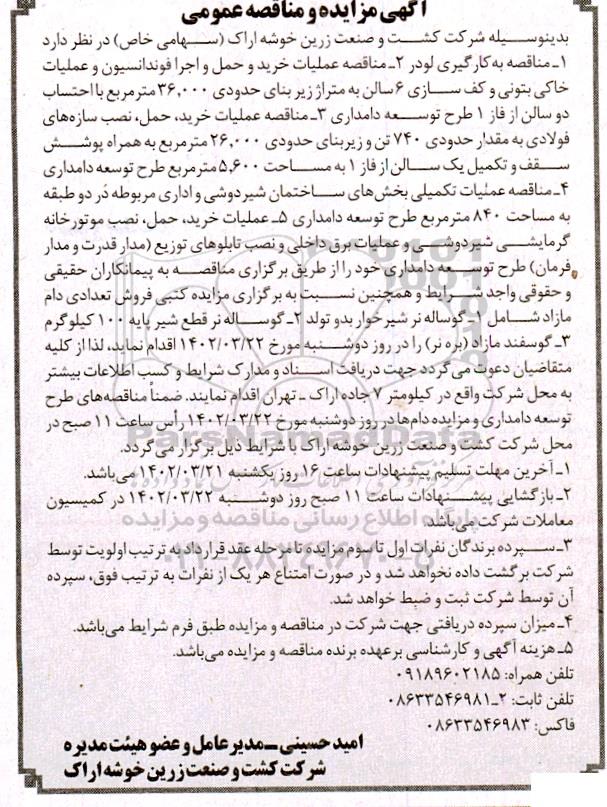 آگهی مزایده و مناقصه عمومی
بدینوسیله شرکت کشت و صنعت زرین خوشه اراک (سهامی خاص) در نظر دارد
۱ـ مناقصه به کارگیری لودر ۲ـ مناقصه عملیات خرید و حمل و اجرا فوندانسیون و عملیات
خاکی بتونی و کف سازی ۶ سالن به متراژ زیر بنای حدودی ۳۶,۰۰۰ مترمربع با احتساب
دو سالن از فاز ۱ طرح توسعه دامداری ۳ـ مناقصه عملیات خرید، حمل، نصب سازه‌های
فولادی به مقدار حدودی ۷۴۰ تن و زیربنای حدودی ۲۶,۰۰۰ مترمربع به همراه پوشش
سقف و تکمیل یک سالن از فاز ۱ به مساحت ۵,۶۰۰ مترمربع طرح توسعه دامداری
۴ـ مناقصه عملیات تکمیلی بخش‌های ساختمان شیردوشی و اداری مربوطه در دو طبقه
به مساحت ۸۴۰ مترمربع طرح توسعه دامداری ۵ـ عملیات خرید، حمل، نصب موتورخانه
گرمایشی شیردوشی و عملیات برق داخلی و نصب تابلوهای توزیع (مدار قدرت و مدار
فرمان) طرح توسعه دامداری خود را از طریق برگزاری مناقصه به پیمانکاران حقیقی
و حقوقی واجد شرایط و همچنین نسبت به برگزاری مزایده کتبی فروش تعدادی دام
مازاد شامل ۱ـ گوساله نر شیرخوار بدو تولد ۲ـ گوساله نر قطع شیر پایه ۱۰۰ کیلوگرم
۳ـ گوسفند مازاد (بره نر) را در روز دوشنبه مورخ ۱۴۰۲/۰۳/۲۲ اقدام نماید، لذا از کلیه
متقاضیان دعوت می‌گردد جهت دریافت اسناد و مدارک شرایط و کسب اطلاعات بیشتر
به محل شرکت واقع در کیلومتر ۷ جاده اراک ـ تهران اقدام نمایند. ضمناً مناقصه‌های طرح
توسعه دامداری و مزایده دام‌ها در روز دوشنبه مورخ ۱۴۰۲/۰۳/۲۲ رأس ساعت ۱۱ صبح در
محل شرکت کشت و صنعت زرین خوشه اراک با شرایط ذیل برگزار می‌گردد.
۱ـ آخرین مهلت تسلیم پیشنهادات ساعت ۱۶ روز یکشنبه ۱۴۰۲/۰۳/۲۱ می‌باشد.
۲ـ بازگشایی پیشنهادات ساعت ۱۱ صبح روز دوشنبه ۱۴۰۲/۰۳/۲۲ در کمیسیون
معاملات شرکت می‌باشد.
۳ـ سپرده برندگان نفرات اول تا سوم مزایده تا مرحله عقد قرارداد به ترتیب اولویت توسط
شرکت برگشت داده نخواهد شد و در صورت امتناع هر یک از نفرات به ترتیب فوق، سپرده
آن توسط شرکت ثبت و ضبط خواهد شد.
۴ـ میزان سپرده دریافتی جهت شرکت در مناقصه و مزایده طبق فرم شرایط می‌باشد.
۵ـ هزینه آگهی و کارشناسی برعهده برنده مناقصه و مزایده می‌باشد.
تلفن همراه: ۰۹۱۸۹۶۰۲۱۸۵
تلفن ثابت: ۲ـ۰۸۶۳۳۵۴۶۹۸۱
فاکس: ۰۸۶۳۳۵۴۶۹۸۳
امید حسینی ـ مدیرعامل و عضو هیئت مدیره
شرکت کشت و صنعت زرین خوشه اراک
ParsNamadData
پایگاه اطلاع رسانی مناقصه و مزایده